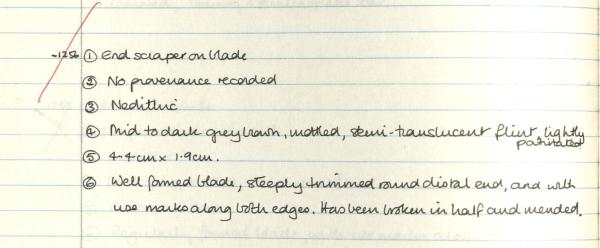 -1256 ① End scraper on blade
② No provenance recorded
③ Neolithic
④ Mid to dark grey brown, mottled, semi-translucent flint, lightly
patinated
⑤ 4.4cm x 1.9cm.
⑥ Well formed blade, steeply trimmed round distal end, and with
use marks along both edges. Has been broken in half and mended.